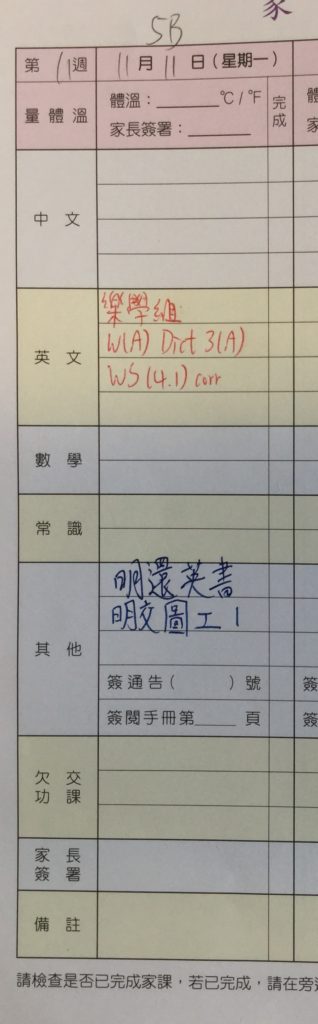 家
5B
第11週 11月11日(星期一)
量體溫 體溫：______°C/°F 完成
家長簽署：______
中文
英文 樂學組
W(A) Dict 3(A)
WS (4.1) corr
數學
常識
其他 明還英書
明交圖工1
簽通告( )號 簽
簽閱手冊第____頁 簽
欠交功課
家長簽署
備註
請檢查是否已完成家課，若已完成，請在旁